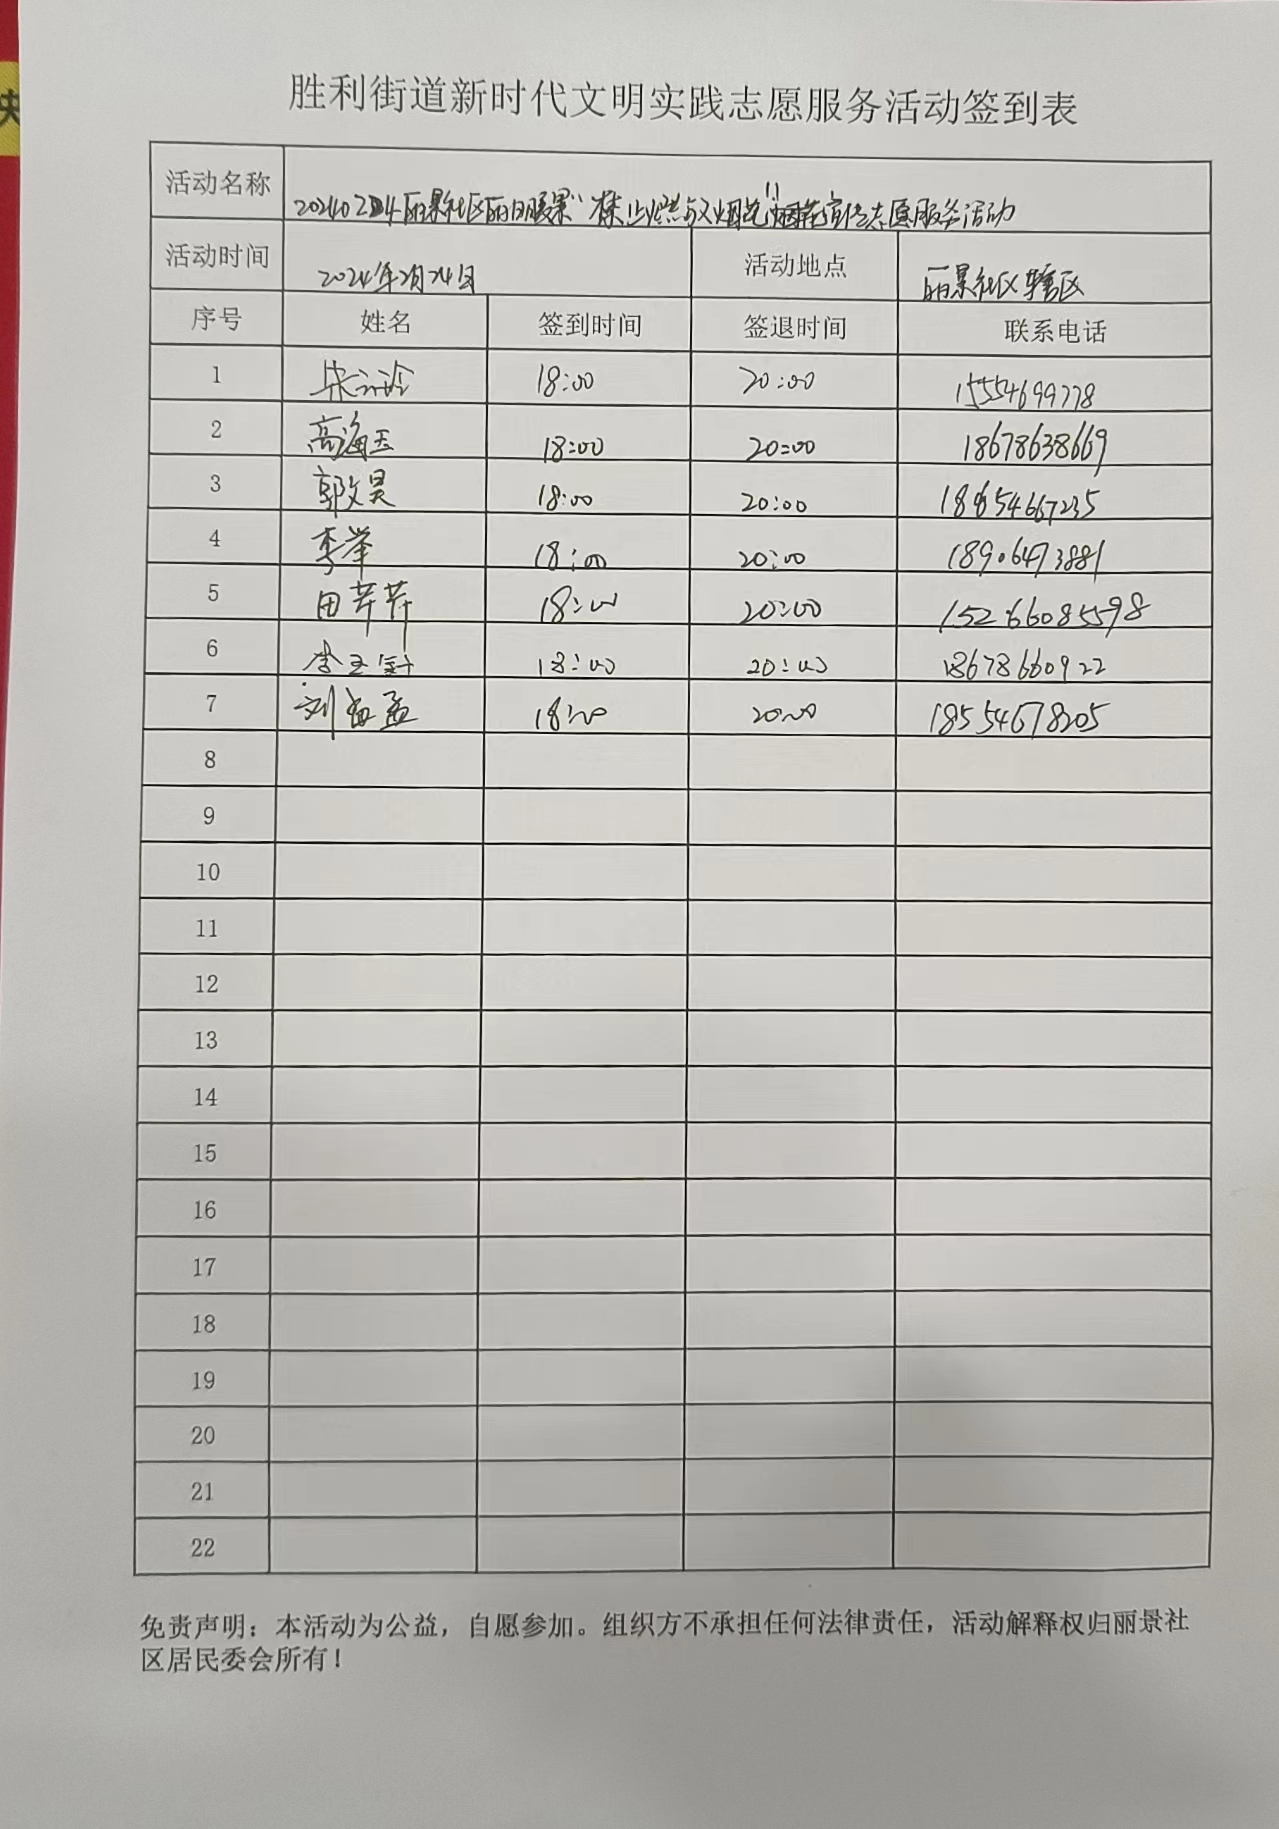 央
胜利街道新时代文明实践志愿服务活动签到表
活动名称 20240224丽景社区 "禁止燃放烟花" 宣传志愿服务活动
活动时间 2024年2月24日 活动地点 丽景社区辖区
序号 姓名 签到时间 签退时间 联系电话
1 18:00 20:00 15554699778
2 高海玉 18:00 20:00 18678638669
3 郭文昊 18:00 20:00 18654667235
4 李举 18:00 20:00 18906473881
5 田芹芹 18:00 20:00 15266085598
6 李玉 18:00 20:00 18678660922
7 刘孟孟 18:00 20:00 18554678205
8
9
10
11
12
13
14
15
16
17
18
19
20
21
22
免责声明：本活动为公益，自愿参加。组织方不承担任何法律责任，活动解释权归丽景社
区居民委会所有！